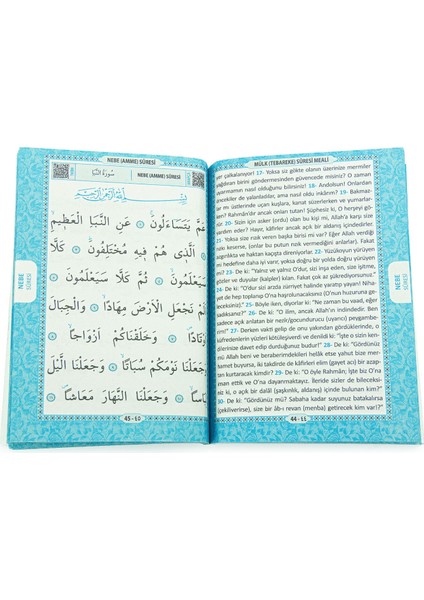 MÜLK (TEBAREKE) SÛRESİ MEALİ
yer çalkalanıyor! 17- Yoksa siz gökte olanın üzerinize mermiler
yağdıran birini göndermesinden güvencede misiniz? O zaman
uyarmamın nasıl olduğunu bilirsiniz! 18- Andolsun! Onlardan
öncekiler de yalanladılar, ama nasıl oldu inkârım? 19- Bakmaz-
lar mı üstlerinde uçan kuşlara, kanat süzerlerken ve yumarlar-
ken? Rahmân'dır ancak onları tutan! Şüphesiz ki, O herşeyi gö-
rendir. 20- Sizin için asker (ordu) olan şu kişi mi, Allah'a karşı size
yardım edecek? Hayır, kâfirler ancak açık bir aldanış içindedirler.
21- Yoksa size rızık veren başka birisi mi var? Eğer Allah size rız-
kını keserse, (onlar bu putun rızık vermediğini anlarlar). Fakat
azgınlıkta ve haktan kaçışta direniyorlar. 22- Yüzükoyun yürüyen
mi hedefine daha iyi varır, yoksa doğru bir yolda doğru yürüyen
mi? 23- De ki: "Yalnız ve yalnız O'dur, sizi inşa eden, size dinleme
24- De ki: "O'dur sizi arzda zürriyet halinde yaratıp yayan! Niha-
yet de hep toplanıp O'na haşrolunacaksınız (O'nun huzuruna ge-
25- Böyle iken, diyorlar ki: "Ne zaman bu vaad, eğer
26- De ki: "O ilim, ancak Allah'ın indindedir. Ben
sadece açık anlatan bir nezir/gocundurucu (uyarıcı) peygambe-
27- Derken vakti gelip de onu yakından gördüklerinde, o
küfredenlerin yüzleri kötüleştiriliverdi ve denildi ki: "İşte o sizin ken-
28- De ki: "Gördünüz
mü Allah beni ve beraberimdekileri helâk etse yahut bize mer-
hamet buyursa, iki takdirde de kâfirleri elim (gayet acı) bir azap-
tan kurtaracak kimdir? 29- De ki: "O öyle Rahmân; İşte biz O'na
iman ettik ve O'na dayanmaktayız. İleride sizler de bileceksi-
niz ki, o açık bir dalâl (şaşkınlık, aldanış) içinde bulunan kim?"
30- De ki: "Gördünüz mü? Sabaha kadar suyunuz batakalırsa
(çekiliverirse), size bir âb-ı revan (menba) getirecek kim var?"
44 - ٤٤
NEBE
SÛRESİ
NEBE (AMME) SÛRESİ
سُورَةُ النَّبَأِ
NEBE (AMME) SÛRESİ
بِسْمِ اللَّهِ الرَّحْمَنِ الرَّحِيمِ
عَمَّ يَتَسَاءَلُونَ ۞ عَنِ النَّبَأِ الْعَظِيمِ
اَلَّذِي هُمْ فِيهِ مُخْتَلِفُونَ ۞ كَلَّا
سَيَعْلَمُونَ ۞ ثُمَّ كَلَّا سَيَعْلَمُونَ ۞
اَلَمْ نَجْعَلِ الْاَرْضَ مِهَادًا ۞ وَالْجِبَالَ
اَوْتَادًا ۞ وَخَلَقْنَاكُمْ اَزْوَاجًا ۞
وَجَعَلْنَا نَوْمَكُمْ سُبَاتًا ۞ وَجَعَلْنَا الَّيْلَ
لِبَاسًا ۞ وَجَعَلْنَا النَّهَارَ مَعَاشًا ۞
45 - ٤٥
NEBE
SÛRESİ